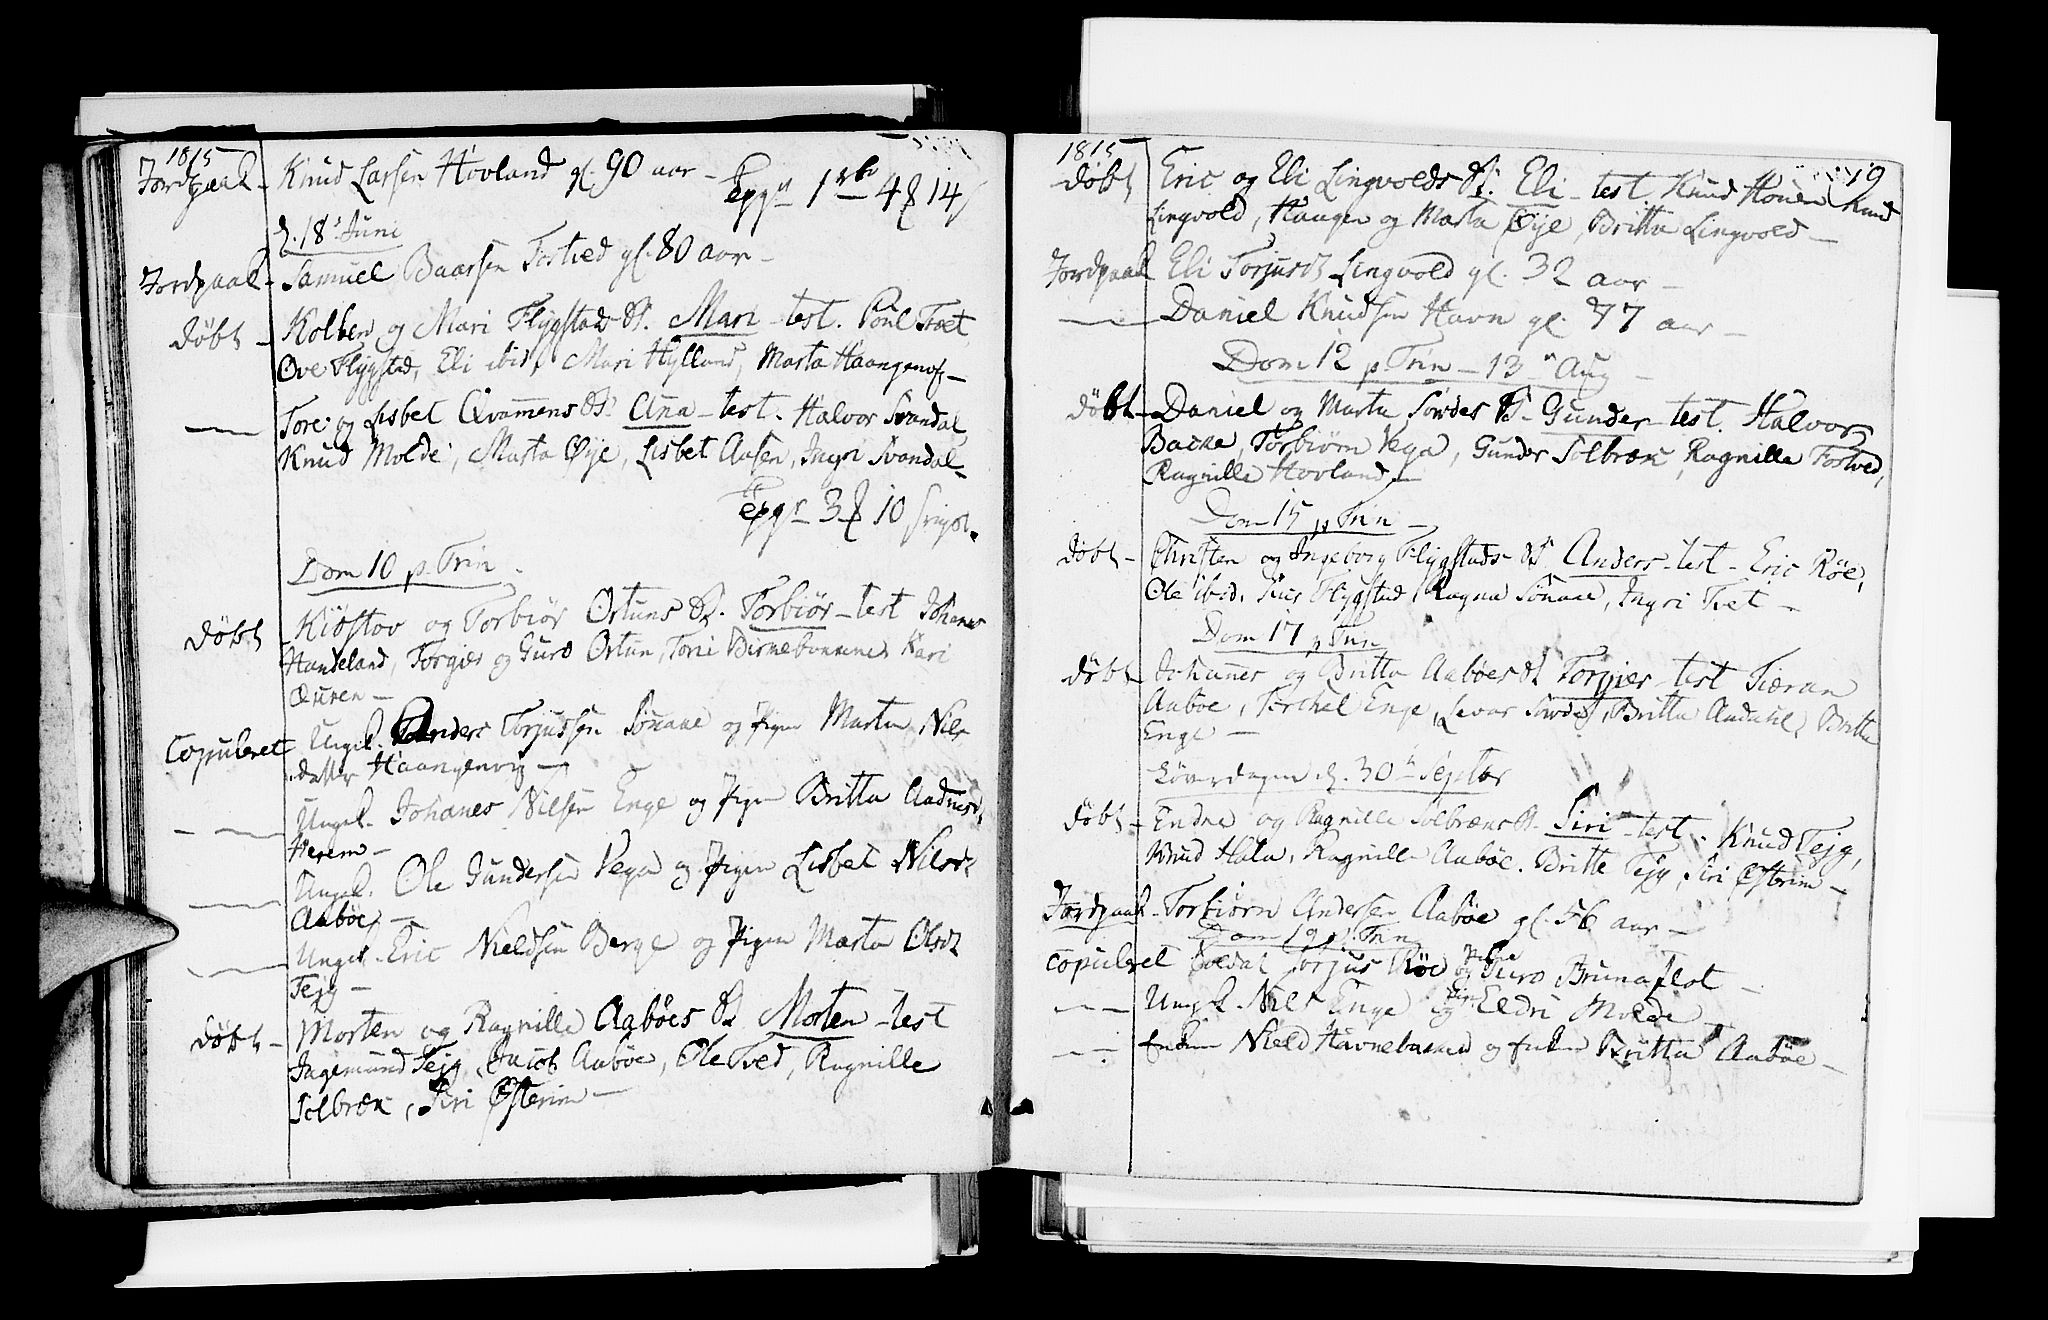 1815
Jordpaak - Knud Larsen Hovland gl. 90 aar -
1 4 14
d. 18 Juni
Jordpaak - Samuel Baarsen Tostved gl. 80 aar -
døbt - Kolben og Mari Flygstads Mari - test. Poul Tvet
Ove Flygstad, Eli ibid, Mari Hylland, Marta Haangenof -
Tore og Lisbet Qvamens Ana - test. Halvor Svandal
Knud Molde, Marta Øye, Lisbet Aasen, Ingri Svandal -
3 10
Dom 10 p. Trin -
døbt - Kiøstov og Torbiør Ortuns Torbiør - test Johanes
Handeland, Torgier og Guro Ortun, Kari
Øuren -
Copuleret Ungk. Anders Torjussen Sønaae og Pigen Marta Niels
datter Haangenvig -
Ungk. Johanes Nilsen Enge og Pigen Britta Aadnesd.
Herem -
Ungk. Ole Gundersen Vega og Pigen Lisbet Nilsd.
Aabøe -
Ungk. Eric Nieldsen Berge og Pigen Marta Olsd.
Tejg -
døbt - Morten og Ragnille Aabøes Morten - test
Ingemund Tejg, Jacob Aabøe, Ole Tved, Ragnille
Solbræk, Siri Østerim -
1815
19
døbt Eric og Eli Lingvolds Eli - test. Knud Houen Knud
Lingvold, Haagen og Marta Øye, Britta Lingvold -
Jordpaak Eli Torjusd. Lingvold gl. 32 aar -
Daniel Knudsen Havn gl. 77 aar -
Dom 12 p. Trin - 13 Aug -
døbt - Daniel og Marta Søvdes Gunder - test. Halvor
Backa, Torbiørn Vega, Gunder Solbræk, Ragnille Tostved,
Ragnille Hovland -
Dom 15 p Trin -
døbt - Christen og Ingeborg Flygstads Anders - test - Eric Røe,
Ole ibid, Flygstad, Ragna Sønaae, Ingri Tvet -
Dom 17 p Trin
døbt - Johannes og Britta Aabøes Torgier - test Tieran
Aabøe, Torchel Enge, Levor Søvde, Britta Aadahl, Britta
Enge -
Løverdagen d. 30 Septbr
døbt - Endre og Ragnille Solbræks Siri - test. Knud Tejg,
Knud Hala, Ragnille Aabøe, Britte Tejg, Siri Østerim -
Jordpaak - Torbiørn Andersen Aabøe gl. 56 aar -
Dom 19 p. Trin
copuleret Soldat Torjus Røe og Pigen Guro Brunaflot -
Ungk. Niels Enge og Pig. Eldri Molde
Enkem Nield Havnebacken og Enken Britta Aabøe -